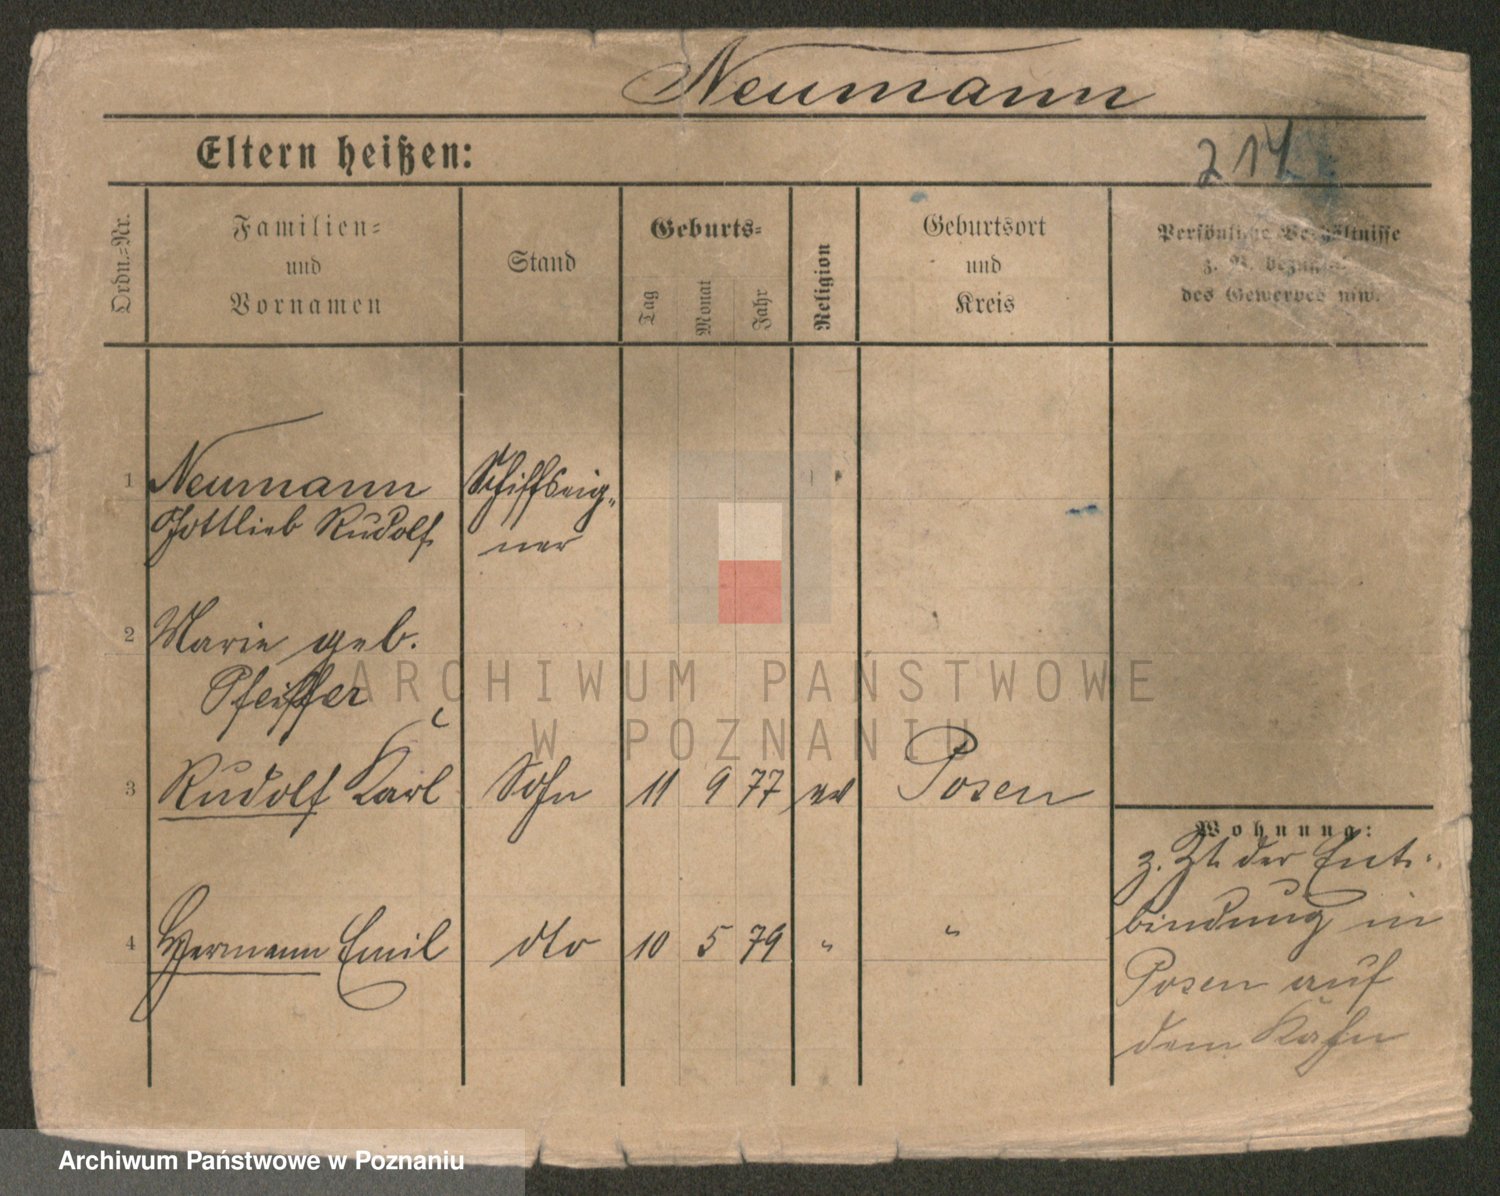 Neumann
Eltern heißen:
214
Ordn.=Nr.
Familien=
und
Vornamen
Stand
Geburts=
Tag
Monat
Jahr
Religion
Geburtsort
und
Kreis
Persönliche Verhältnisse
z. B. bezügl.
des Gewerbes usw.
1
Neumann
Gottlieb Rudolf
Schiffseig„
ner
2
Marie geb.
Pfeiffer
3
Rudolf Karl
Sohn
11 9 77
ev
Posen
4
Hermann Emil
dto
10 5 79
"
"
Wohnung:
z. Zt. der Ent-
bindung in
Posen auf
dem Kahn
ARCHIWUM PAŃSTWOWE
W POZNANIU
Archiwum Państwowe w Poznaniu